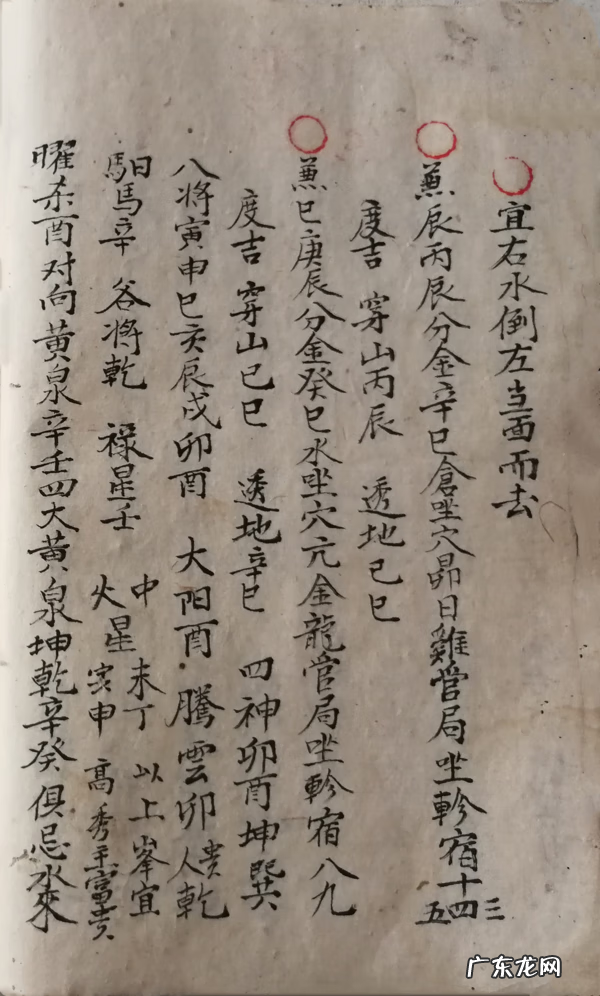 宜右水倒左当面而去
兼辰丙辰分金辛巳倉坐穴昴日雞管局坐軫宿十三四五
度吉 穿山丙辰 透地己巳
兼巳庚辰分金癸巳水坐穴亢金龍管局坐軫宿八九
度吉 穿山己巳 透地辛巳 四神卯酉坤巽
八將寅申巳亥辰戌卯酉 大阳酉 騰雲卯 貴人乾
馹馬辛 谷將乾 禄星壬 火星 中未丁亥申 以上峯宜高秀主富贵
曜杀酉对向黄泉辛壬四大黄泉坤乾辛癸俱忌水來
广东龙网